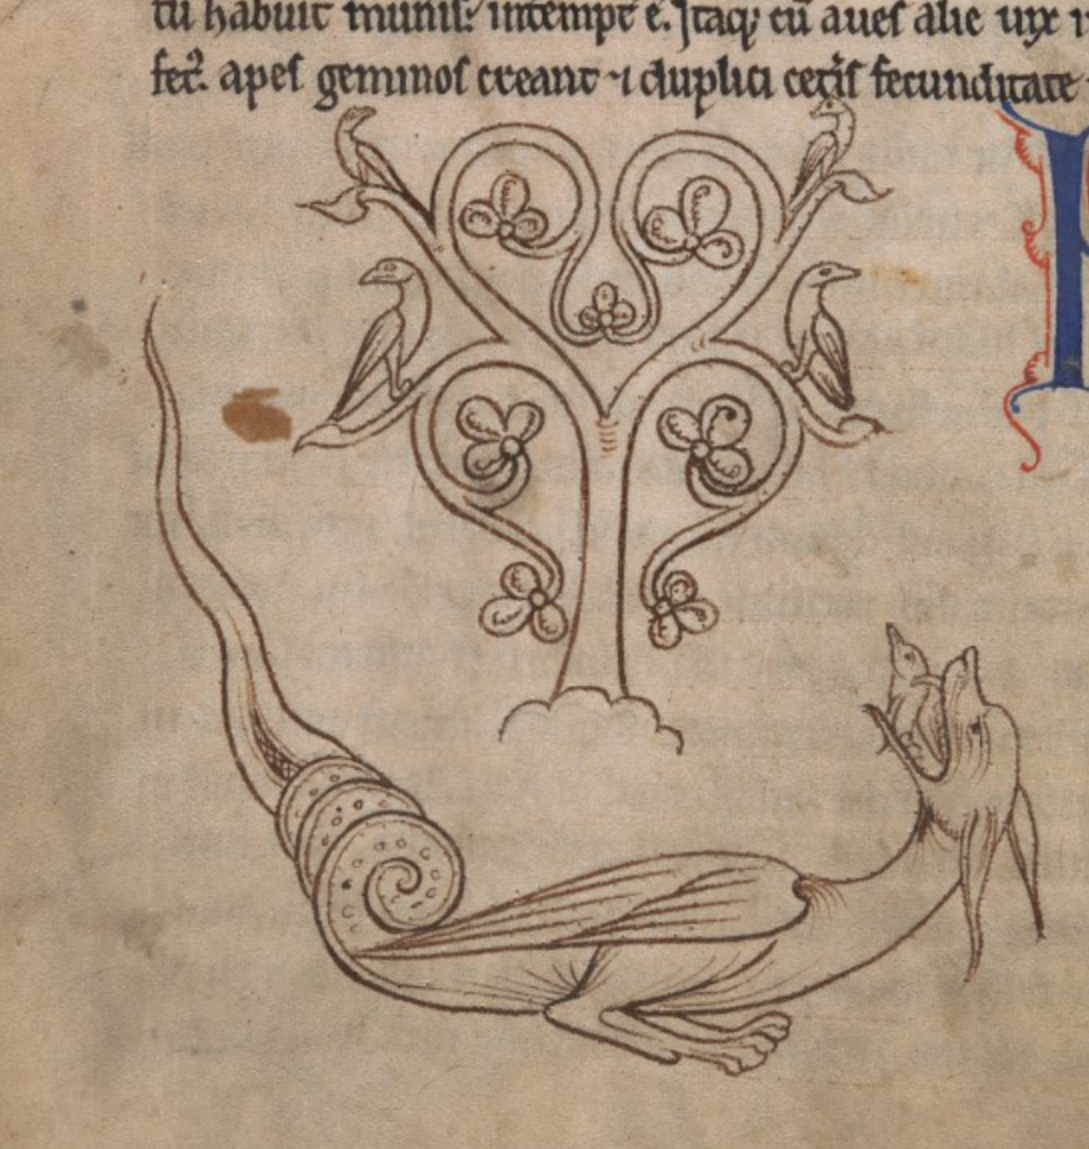 tu habuit munis: intempt e. Itaq; cū aues alie uix
fec̉. apes geminos creant ⁊ duplici cet̉is fecunditate